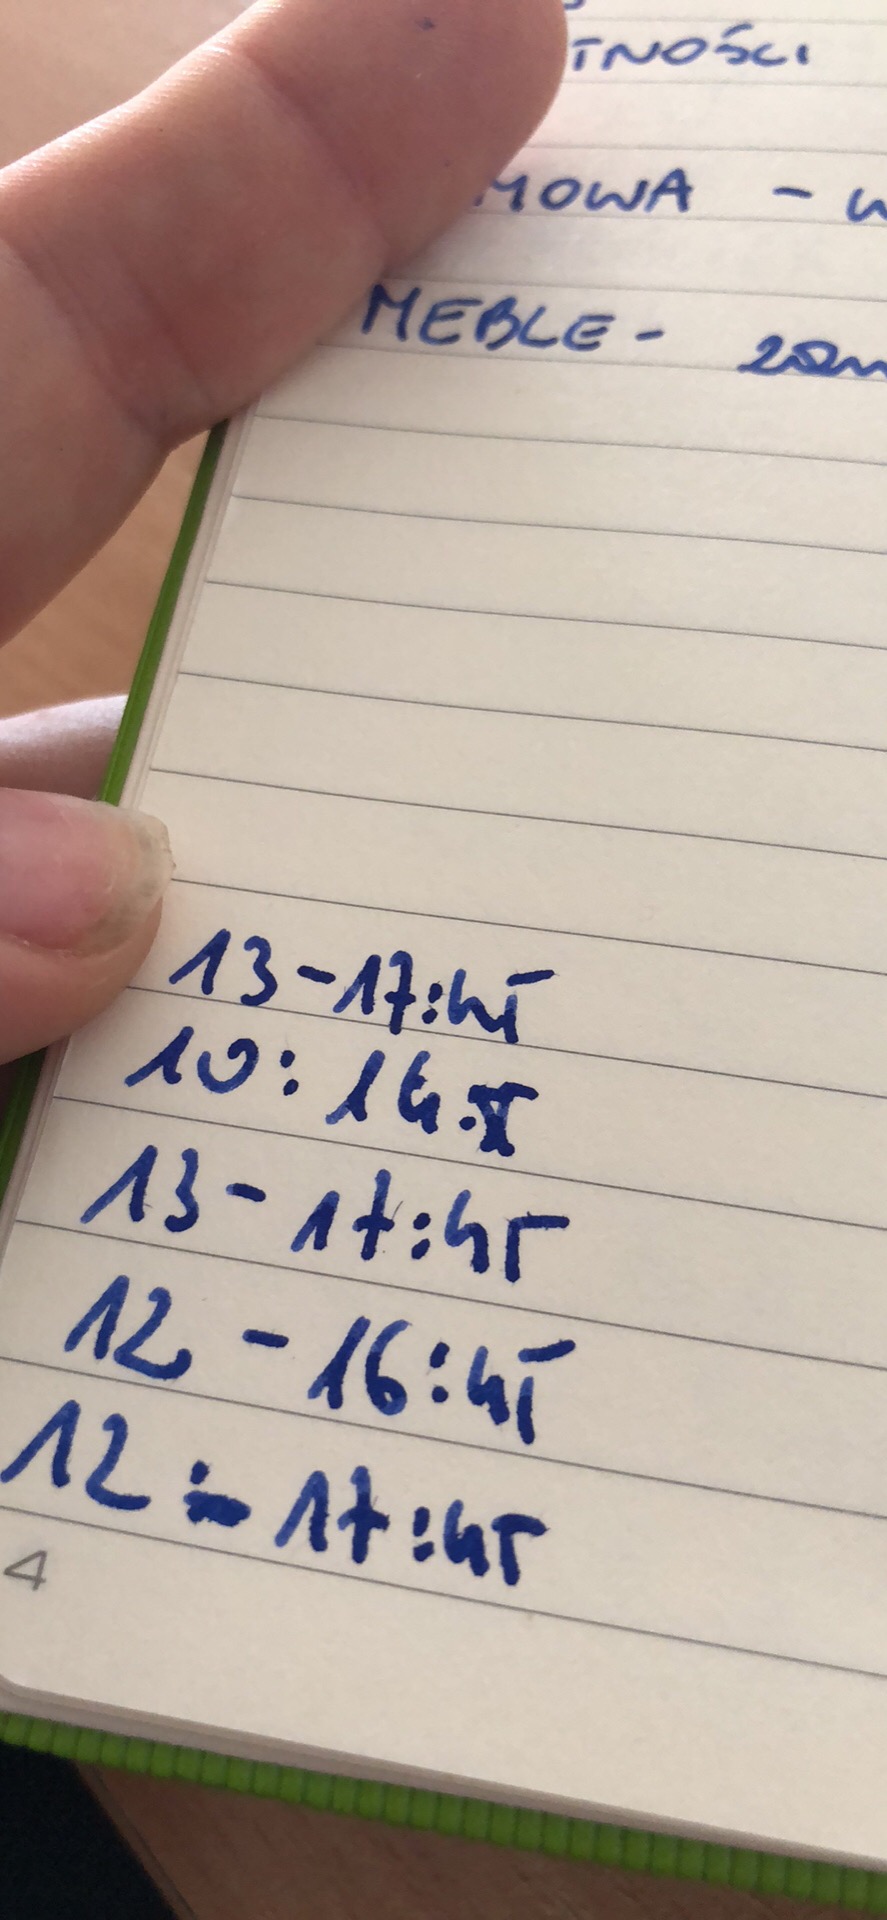 TNOŚCI
MOWA -
MEBLE -
13-17:45
10: 14.
13- 17:45
12 - 16:45
12 - 17:45
4